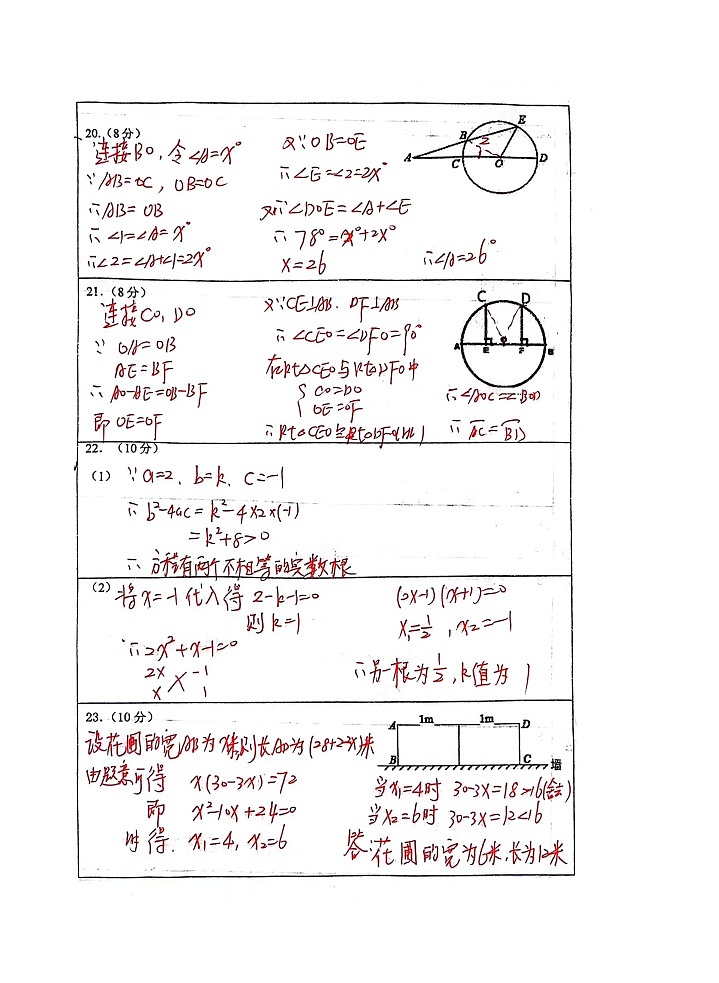 20.（8分）
连接BO，令∠A=x°
∵AB=OC，OB=OC
∴AB=OB
∴∠1=∠A=x°
∴∠2=∠A+∠1=2x°
又∵OB=OE
∴∠E=∠2=2x°
又∵∠DOE=∠A+∠E
∴78°=x°+2x°
x=26
∴∠A=26°
A B C O D E 1 2
21.（8分）
连接CO，DO
∵OA=OB
AE=BF
∴AO-AE=OB-BF
即OE=OF
又∵CE⊥AB．DF⊥AB
∴∠CEO=∠DFO=90°
在Rt△CEO与Rt△DFO中
CO=DO
OE=OF
∴Rt△CEO≌Rt△DFO(HL)
C D
A E O F B
∴∠AOC=∠BOD
∴AC=BD
22.（10分）
（1）∵a=2、b=k、c=-1
∴b²-4ac=k²-4×2×(-1)
=k²+8>0
∴方程有两个不相等的实数根
（2）将x=-1代入得 2-k-1=0
则k=1
∴2x²+x-1=0
2x -1
x 1
(2x-1)(x+1)=0
x₁=1/2，x₂=-1
∴另一根为1/2，k值为1
23.（10分）
设花圃的宽AB为x米，则长AD为(28+2-3x)米
由题意可得 x(30-3x)=72
即 x²-10x+24=0
得．x₁=4，x₂=6
A 1m 1m D
B C 墙
当x₁=4时 30-3x=18>16(舍去)
当x₂=6时 30-3x=12<16
答：花圃的宽为6米，长为12米